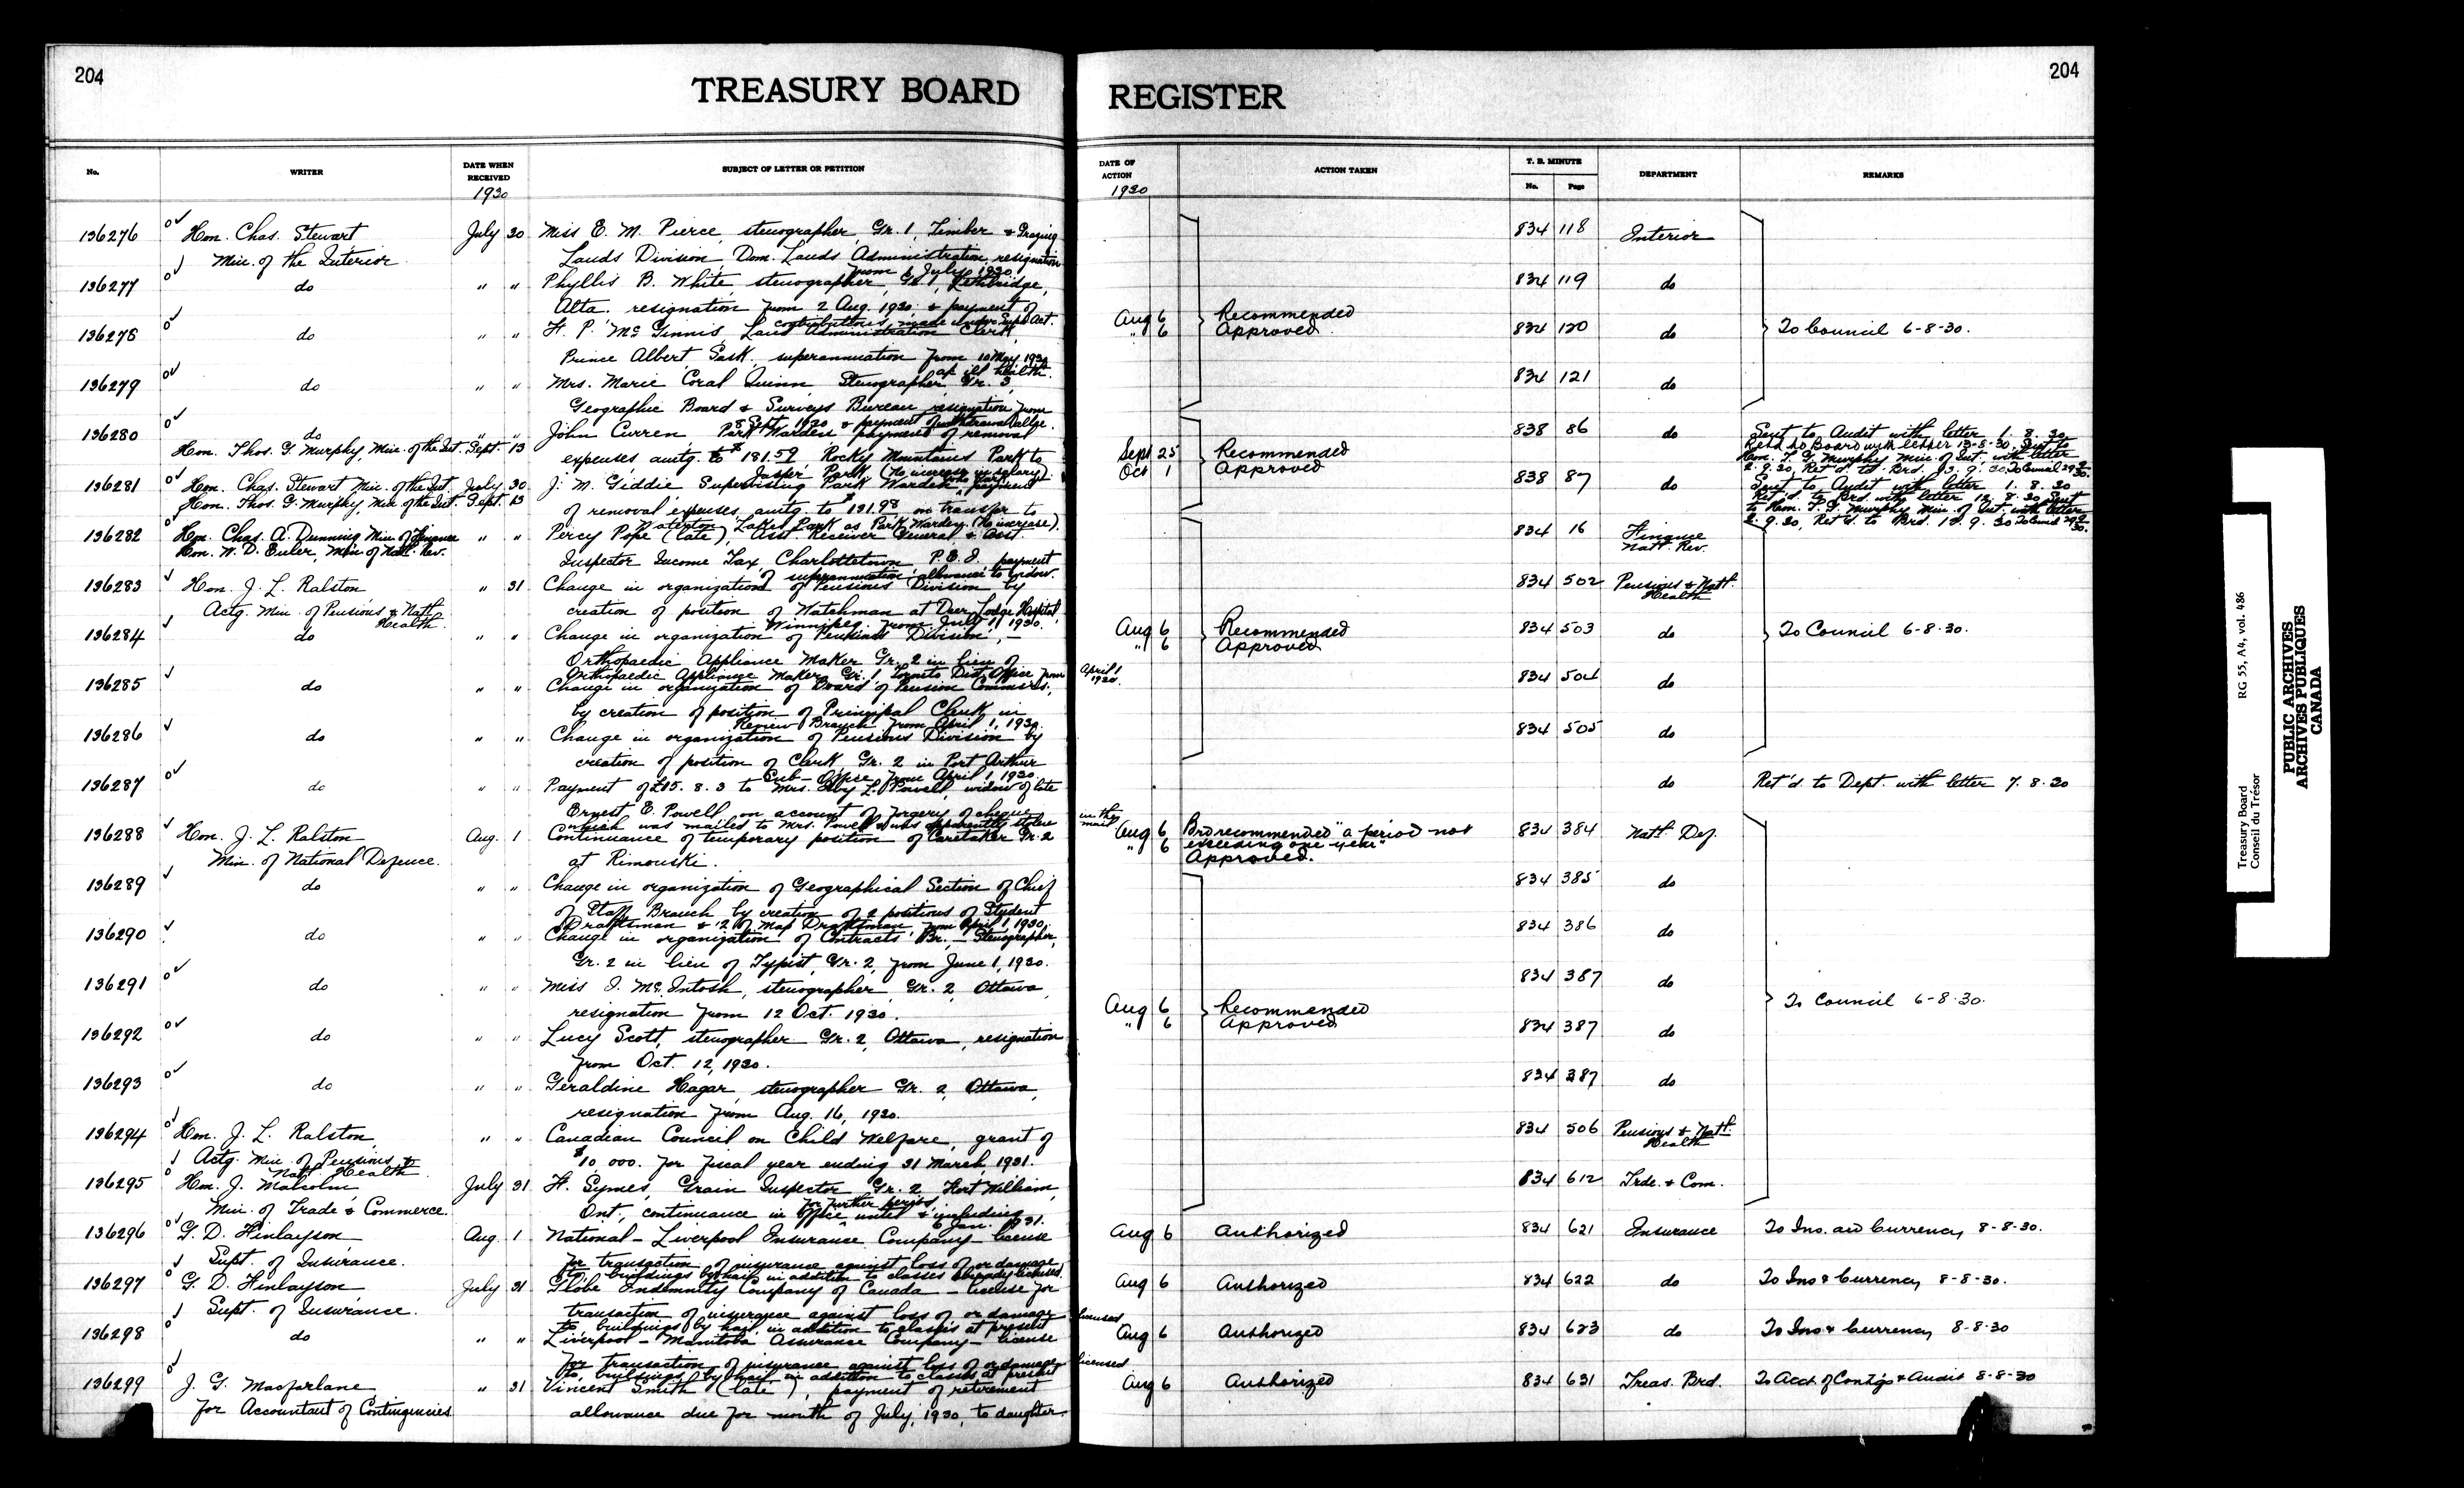 204
TREASURY BOARD REGISTER
204
No. WRITER DATE WHEN RECEIVED SUBJECT OF LETTER OR PETITION DATE OF ACTION ACTION TAKEN T. B. MINUTE No. Page DEPARTMENT REMARKS
1930 1930
136276 Hon. Chas. Stewart July 30 Miss E. M. Pierce, stenographer Gr. 1, Timber & Grazing 834 118 Interior
Min. of the Interior Lands Division, Dom. Lands Administration, resignation
from 1 July 1930.
136277 do " " Phyllis B. White, stenographer, Gr. 1, Lethbridge, 834 119 do
Alta. resignation from 2 Aug. 1930 & payment of
contributions made under Supn Act.
Aug 6 Recommended
" 6 Approved
136278 do " " H. P. McGinnis, Land Administration Clerk, 834 120 do To Council 6-8-30.
Prince Albert, Sask. superannuation from 10 May 1930
ac. ill health.
136279 do " " Mrs. Marie Coral Quinn Stenographer Gr. 3, 834 121 do
Geographic Board & Surveys Bureau resignation from
8 Sept. 1930 & payment of withdrawal allce.
136280 do " " John Curren, Park Warden payment of removal 838 86 do Sent to Audit with letter 1.8.30
Hon. Thos. G. Murphy, Min. of the Int. Sept. 13 expenses amtg. to $181.59 Rocky Mountains Park to Ret'd to Board with letter 13-8-30. Sent to
Jasper Park (no increase in salary). Hon. T. G. Murphy Min. of Int. with letter
Sept 25 Recommended 2.9.30, Ret'd. to Brd. 13.9.30
Oct 1 Approved
136281 Hon. Chas. Stewart Min. of the Int. July 30 J. M. Giddie Supervising Park Warden, payment 838 87 do Sent to Audit with letter 1.8.30
Hon. Thos. G. Murphy Min. of the Int. Sept. 13 of removal expenses amtg. to $191.98 on transfer to Ret'd. to Brd. with letter 12.8.30 Sent
Waterton Lakes Park as Park Warden (No increase). to Hon. T. G. Murphy Min. of Int. with letter
2.9.30, Ret'd. to Brd. 13.9.30
136282 Hon. Chas. A. Dunning Min of Finance " " Percy Pope (late), Asst. Receiver General & Asst. 834 16 Finance
Hon. W. D. Euler, Min of Natl. Rev. Inspector Income Tax, Charlottetown P.E.I. payment Natl. Rev.
of superannuation allowance to widow.
136283 Hon. J. L. Ralston " 31 Change in organization of Pensions Division by 834 502 Pensions & Natl. Health
Actg. Min. of Pensions & Natl. Health creation of position of Watchman at Deer Lodge Hospital,
Winnipeg, from July 11 1930.
136284 do " " Change in organization of Pensions Division, — Aug 6 Recommended 834 503 do To Council 6-8-30.
" 6 Approved
Orthopaedic Appliance Maker Gr. 2 in lieu of
Orthopaedic Appliance Maker Gr. 1, Toronto Dist. Office from April 1 1930.
136285 do " " Change in organization of Board of Pension Commrs., 834 504 do
by creation of position of Principal Clerk in
Review Branch from April 1, 1930.
136286 do " " Change in organization of Pensions Division by 834 505 do
creation of position of Clerk Gr. 2 in Port Arthur
Sub-Office from April 1, 1930.
136287 do " " Payment of £15.8.3 to Mrs. L. Powell, widow of late do Ret'd. to Dept. with letter 7.8.30
Ernest E. Powell on account of forgery of cheque
which was mailed to Mrs. Powell & was apparently stolen in the mail
136288 Hon. J. L. Ralston Aug. 1 Continuance of temporary position of Caretaker Gr. 2 Aug 6 Brd recommended "a period not 834 384 Natl. Def.
Min. of National Defence. at Rimouski. " 6 exceeding one year"
Approved.
136289 do " " Change in organization of Geographical Section of Chief 834 385 do
of Staff Branch by creation of 2 positions of Student
Draftsman & 2 of Map Draftsman from April 1, 1930.
136290 do " " Change in organization of Contracts Br. — Stenographer, 834 386 do
Gr. 2 in lieu of Typist, Gr. 2, from June 1, 1930.
136291 do " " Miss I. McIntosh, stenographer, Gr. 2, Ottawa, 834 387 do
resignation from 12 Oct. 1930.
Aug 6 Recommended To Council 6-8-30.
" 6 Approved
136292 do " " Lucy Scott, stenographer Gr. 2, Ottawa, resignation 834 387 do
from Oct. 12, 1930.
136293 do " " Geraldine Hagar, stenographer Gr. 2, Ottawa, 834 387 do
resignation from Aug. 16, 1930.
136294 Hon. J. L. Ralston, " " Canadian Council on Child Welfare, grant of 834 506 Pensions & Natl. Health
Actg. Min. of Pensions & Natl. Health $10,000. for fiscal year ending 31 March, 1931.
136295 Hon. J. Malcolm July 31 H. Symes, Grain Inspector Gr. 2, Fort William, 834 612 Trde. & Com.
Min. of Trade & Commerce. Ont., continuance in office for further period until & including
6 Jan. 1931.
136296 G. D. Finlayson Aug. 1 National-Liverpool Insurance Company—license Aug 6 Authorized 834 621 Insurance To Ins. and Currency 8-8-30.
Supt. of Insurance. for transaction of insurance against loss of or damage
to buildings by hail in addition to classes already licensed.
136297 G. D. Finlayson July 31 Globe Indemnity Company of Canada — license for Aug 6 Authorized 834 622 do To Ins & Currency 8-8-30.
Supt. of Insurance. transaction of insurance against loss of or damage
to buildings by hail, in addition to classes at present licensed
136298 do " " Liverpool-Manitoba Assurance Company—license Aug 6 Authorized 834 623 do To Ins & Currency 8-8-30
for transaction of insurance against loss of or damage
to buildings by hail in addition to classes at present licensed
136299 J. G. Macfarlane " 31 Vincent Smith (late), payment of retirement Aug 6 Authorized 834 631 Treas. Brd. To Acct. of Contg's & Audit 8-8-30
for Accountant of Contingencies allowance due for month of July, 1930, to daughter.
Treasury Board
Conseil du Trésor
RG 55, A4, vol. 486
PUBLIC ARCHIVES
ARCHIVES PUBLIQUES
CANADA